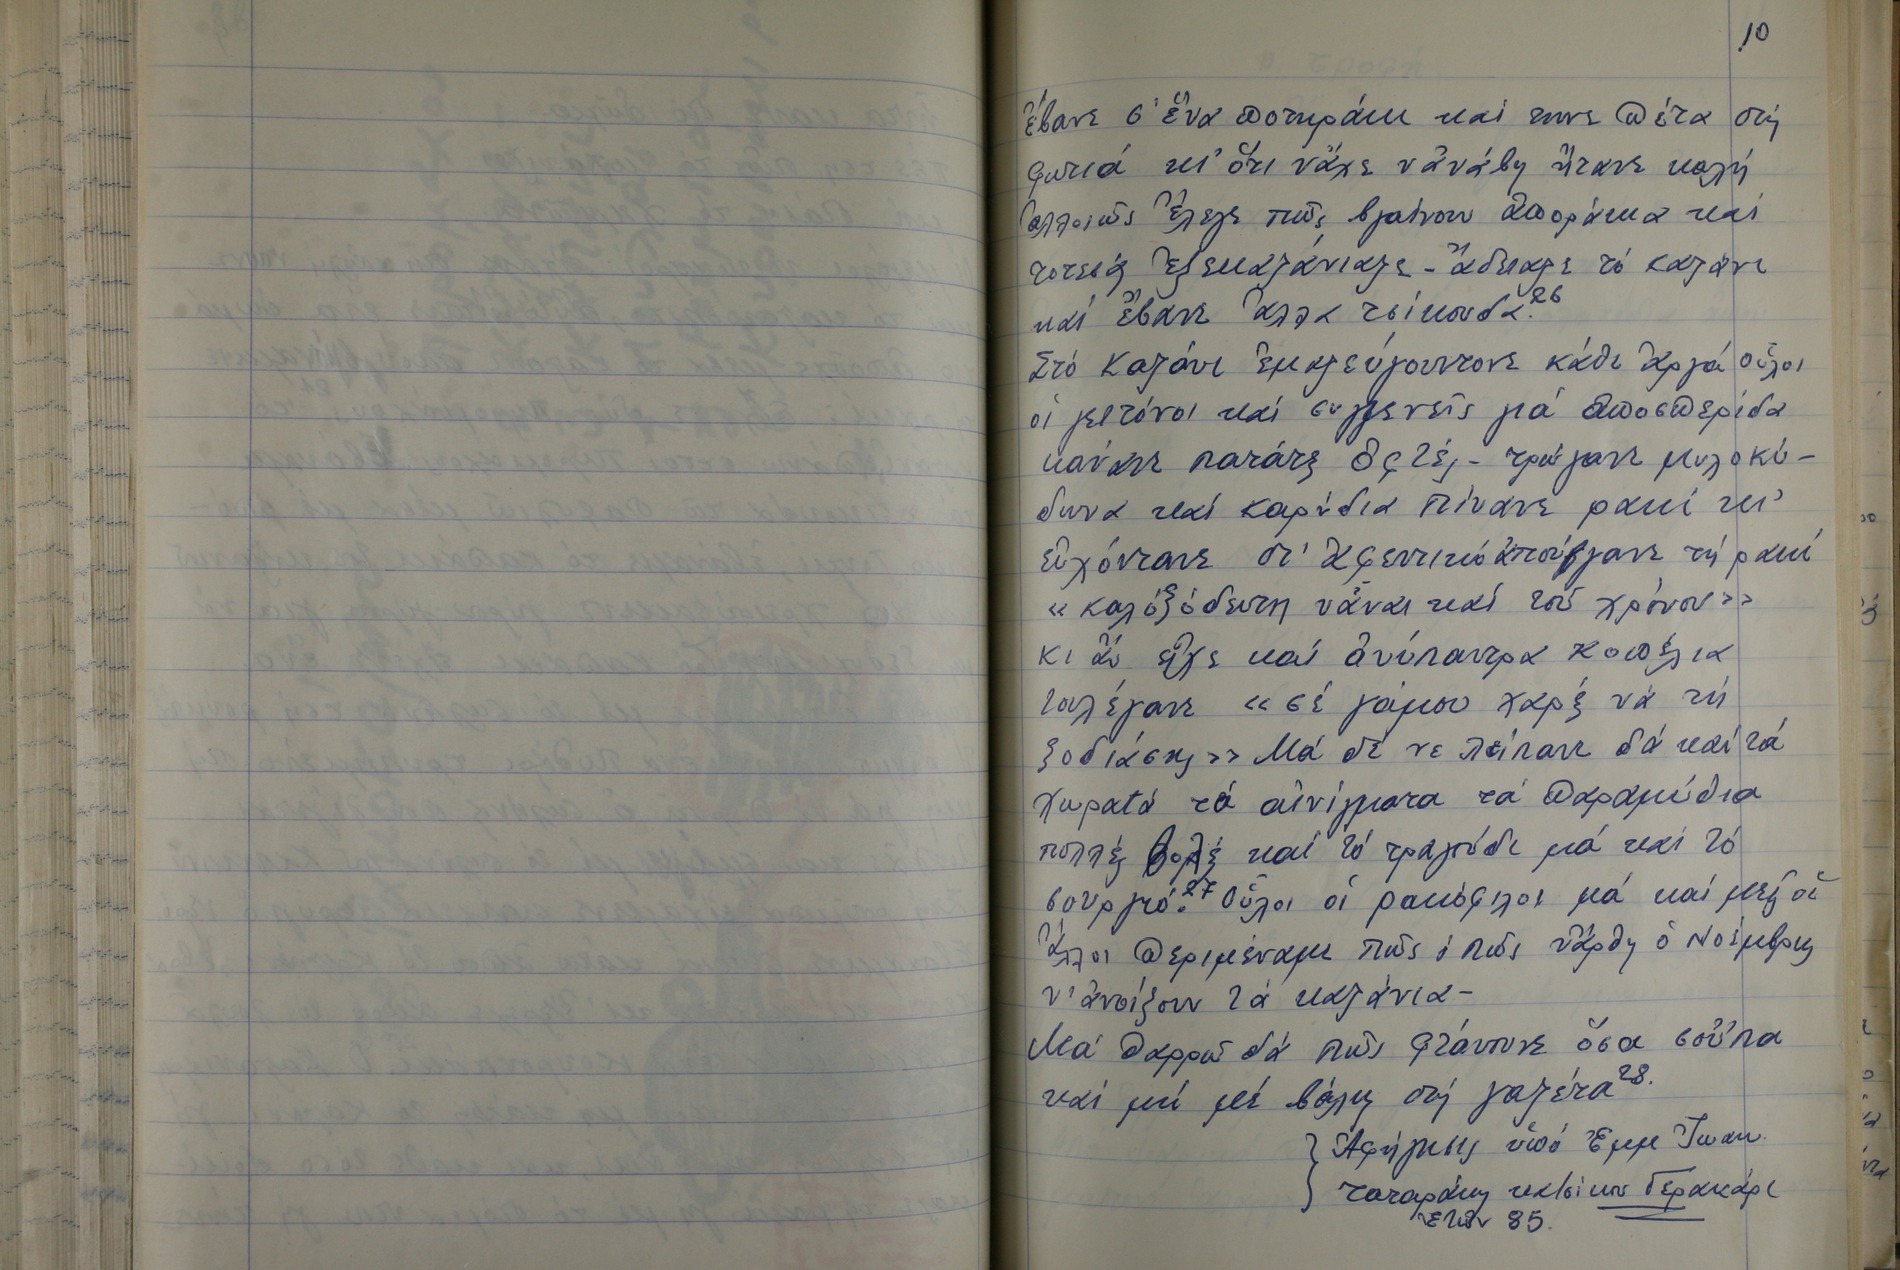 10
ἔβανε σ' ἕνα ποτηράκι καί τηνε πέτα στή
φωτιά κι' ὅτι νἆχε νἀνάβγη ἤτανε καλή
ἀλλοιῶς ἔλεγε πῶς βγαίνουν ἀποράκια καί
τοτεσάς ἐξεκαζάνιαζε - ἄδειαζε τό καζάνι
καί ἔβανε ἄλλα τσίκουδα.26
Στό καζάνι ἐμαζεύγουντονε κάθε ἀργά οὖλοι
οἱ γειτόνοι καί συγγενεῖς γιά ἀποσπερίδα
κάνανε πατάτες ὀφτές - τρώγανε μηλοκύ-
δωνα καί καρύδια πίνανε ρακί κι'
εὐχόντανε στ' ἀφεντικό ἀπούβγανε τή ρακί
« καλόξόδευτη νἆναι καί τοῦ χρόνου »
κι ἄν εἶχε καί ἀνύπαντρα κοπέλια
τουλέγανε « σέ γάμου χαρές νά τή
ξοδιάσης » Μά δέ νε λείπανε δά καί τά
χωρατά τά αἰνίγματα τά παραμύθια
πολλές βολές καί τό τραγούδι μά καί τό
σουργιό.27 Οὖλοι οἱ ρακόφιλοι μά καί μεῖς οἱ
ἄλλοι περιμέναμε πῶς ὁ πῶς νἄρθη ὁ Νοέμβρης
ν' ἀνοίξουν τά καζάνια -
Μά θαρρῶ δά πῶς φτάνουνε ὅσα σοῦπα
καί μή μέ βάλης στή γαζέτα28.
Ἀφήγησις ὑπό Ἐμμ Ἰωαν.
Ταταράκη κατοίκου Γερακάρι
ἐτῶν 85.